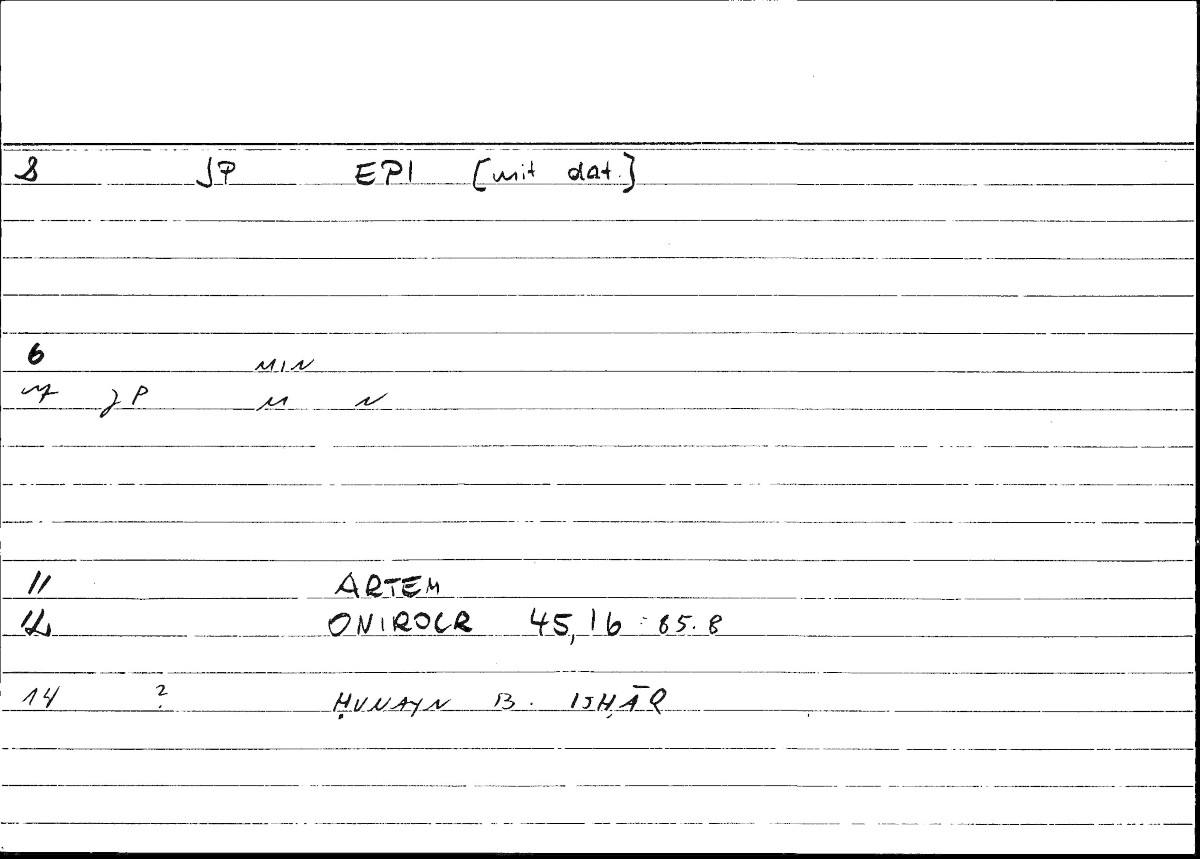 8 JP EPI [mit dat.]
6 MIN
JP M N
11 ARTEM
12 ONIROCR 45,16 : 85.8
14 ? ḤUNAYN B. ISḤĀQ